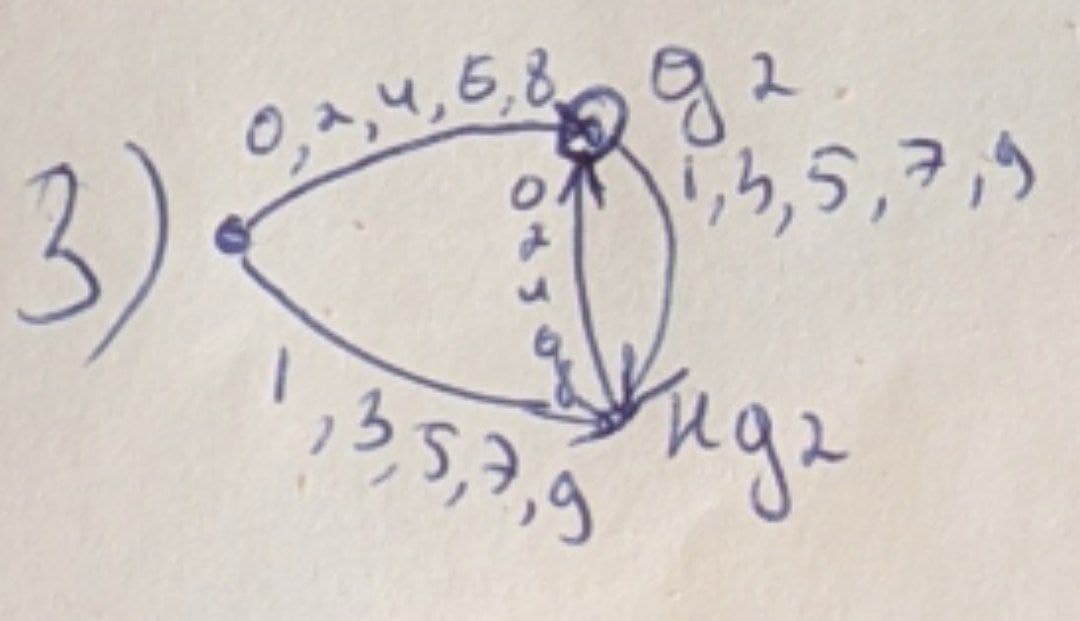 3)
0, 2, 4, 6, 8
g 2
1, 3, 5, 7, 9
0
2
4
6
8
1, 3, 5, 7, 9
Hg2